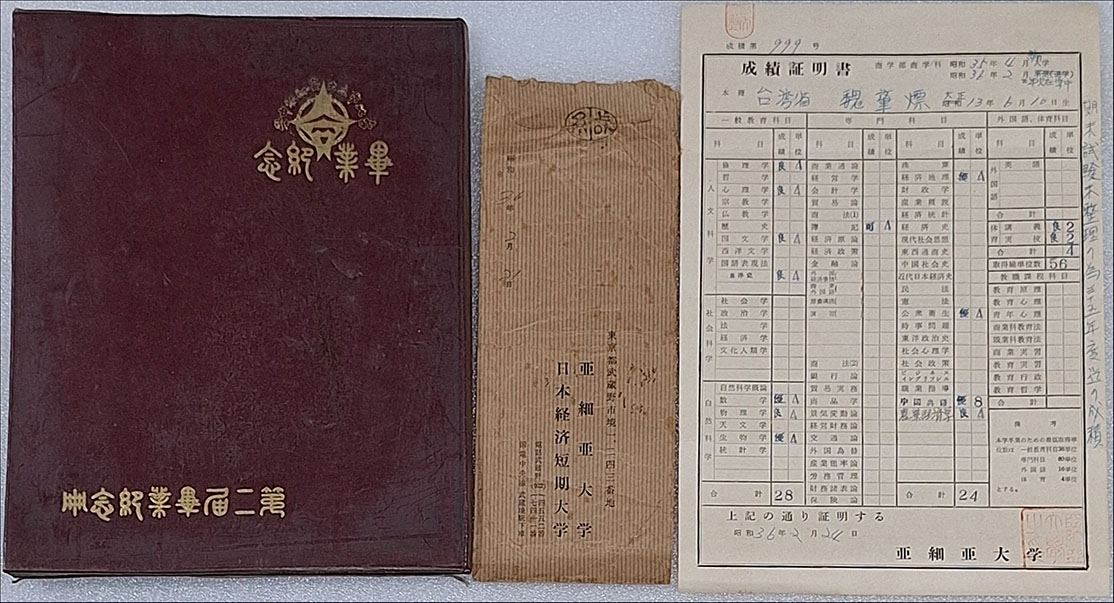 畢業紀念
第二屆畢業紀念冊
昭和36年2月21日
東京都武蔵野市境
亜細亜大学
日本経済短期大学
成績第 999 号
成績証明書
商学部商学科
昭和35年4月
昭和36年2月
本籍 台湾省
昭和13年6月10日生
一般教育科目
専門科目
外国語、体育科目
科目 成績 単位
人文科学
倫理学 良 4
哲学
心理学 良 4
宗教学
仏教学
歴史
国文学 良 4
西洋文学
国語表現法
東洋史 良 4
社会科学
社会学
政治学
法学
経済学
文化人類学
自然科学
自然科学概論
数学 優 4
物理学 良 4
天文学
生物学 優 4
統計学
合計 28
商業通論
経営学
会計学
貿易論
商法(1)
簿記 可 4
経済原論
経済政策
金融論
商法(2)
銀行論
貿易実務
商品学
景気変動論
経営財務論
交通論
外国為替
産業能率論
労務管理
財務諸表論
保険論
珠算
経済地理 優 4
財政学
産業概説
経済統計
経済史
現代社会思想
東西通商史
中国社会史
近代日本経済史
民法
憲法
公衆衛生 優 4
時事問題
東洋政治史
社会心理学
社会政策
ビジネスイングリッシュ
職業指導
優 8
良 4
合計 24
外国語
英語
合計
体育
講義 良 2
実技 良 2
合計 4
取得総単位数 56
教職課程科目
教育原理
教育心理
青年心理
商業科教育法
職業科教育法
商業実習
教育実習
教育行政
教育哲学
合計
備考
本学卒業のための最低取得単
位数は 一般教育科目36単位
専門科目 80単位
外国語 16単位
体育 4単位
とする。
上記の通り証明する
昭和36年2月24日
亜細亜大学